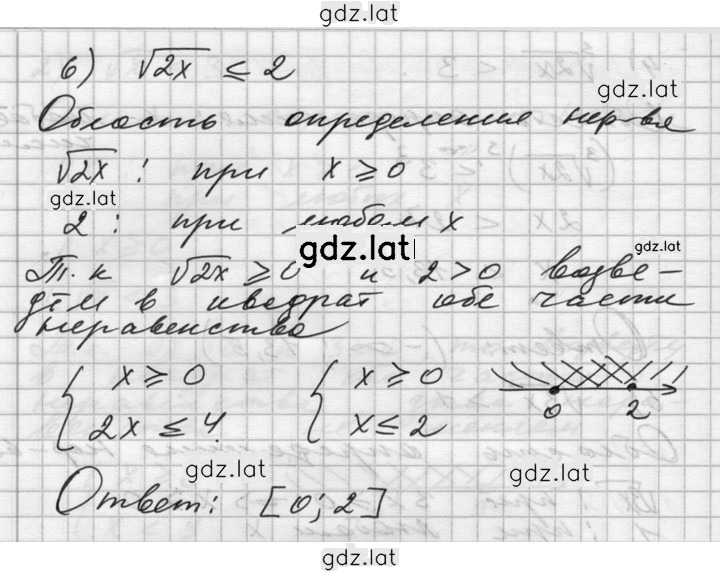 gdz.lat
6) √2x ≤ 2
gdz.lat
Область определения нер-ва
√2x : при x ≥ 0
gdz.lat
2 : при любом x
gdz.lat
gdz.lat
Т.к √2x ≥ 0 и 2 > 0 возве-
дём в квадрат обе части
неравенства
{ x ≥ 0 { x ≥ 0
2x ≤ 4 x ≤ 2
0 2
gdz.lat
gdz.lat
Ответ: [0; 2]
gdz.lat